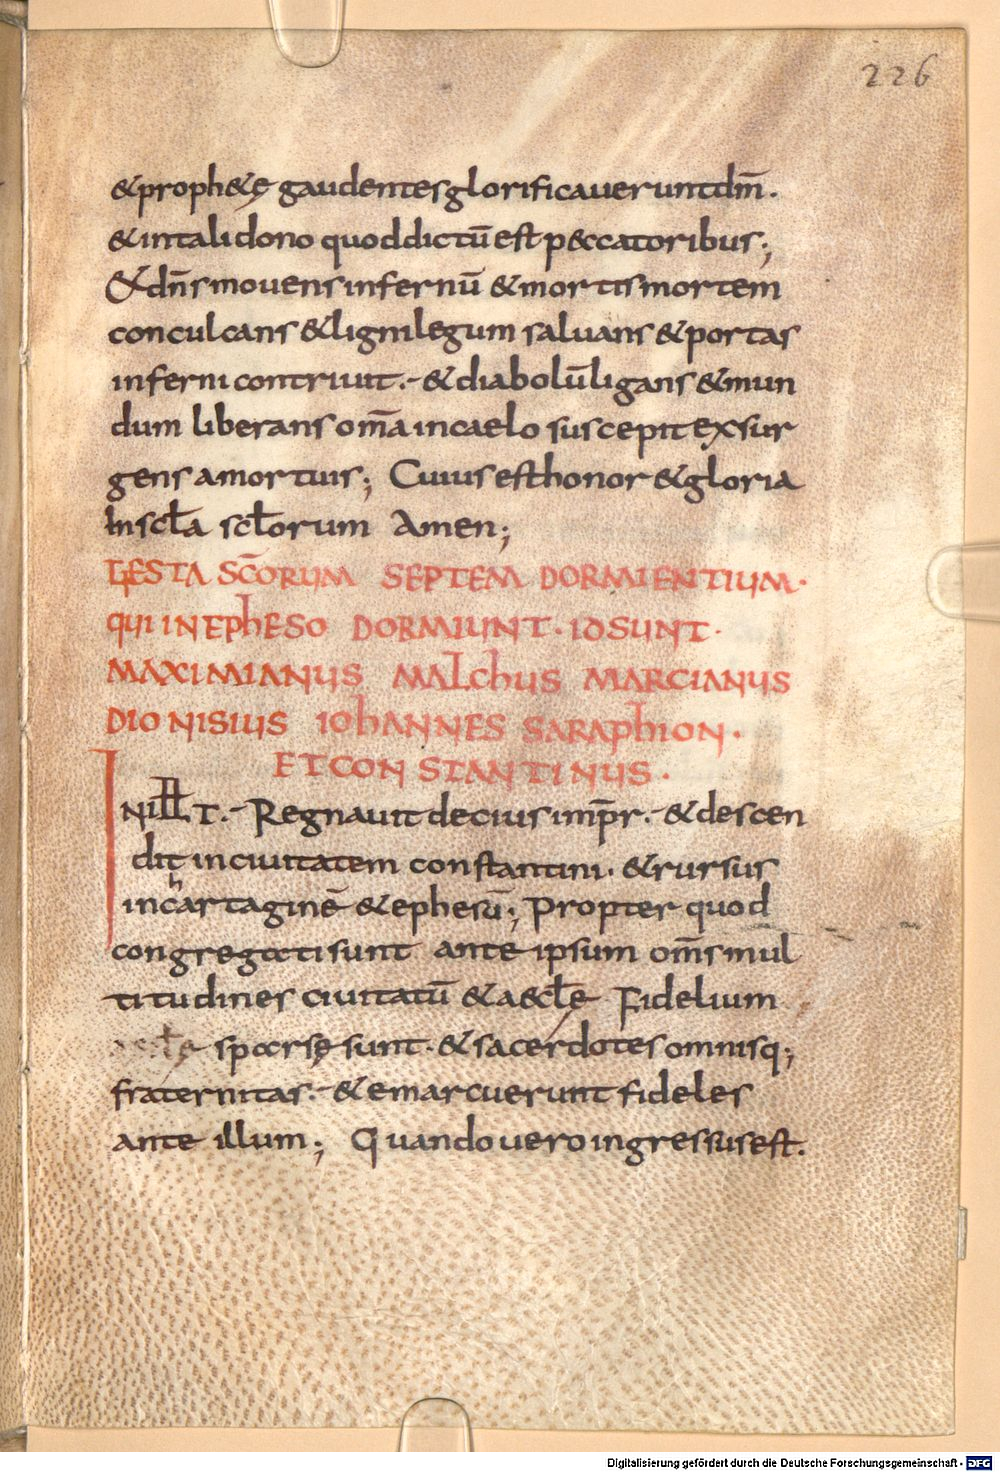 226
& proph&ę gaudentes glorificauerunt dm̄.
& in tali dono quod dictū est peccatoribus;
& dn̄s mouens infernū & mortis mortem
conculcans & ligni legum saluans & portas
inferni contriuit.- & diabolū ligans & mun
dum liberans om̄a in caelo suscepit exsur
gens a mortuis; Cuius est honor & gloria
In scl̄a scl̄orum Amen;
GESTA SC̄ORUM SEPTEM DORMIENTIUM·
QUI IN EPhESO DORMIUNT· ID SUNT·
MAXIMIANUS MALChUS MARCIANUS
DIONISIUS IOhANNES SARAPhION·
ET CONSTANTINUS·
IN ILL̄ T.- Regnauit decius imp̄r.- & descen
dit in ciuitatem constantini· & rursus
in chartaginē & ephesū; Propter quod
congregati sunt ante ipsum om̄s mul
titudines ciuitatū & aeccl̄e Fidelium
sparsę sunt· & sacerdotes omnisq;
fraternitas.- & emarcuerunt fideles
ante illum; Quando uero ingressus est.
Digitalisierung gefördert durch die Deutsche Forschungsgemeinschaft - DFG